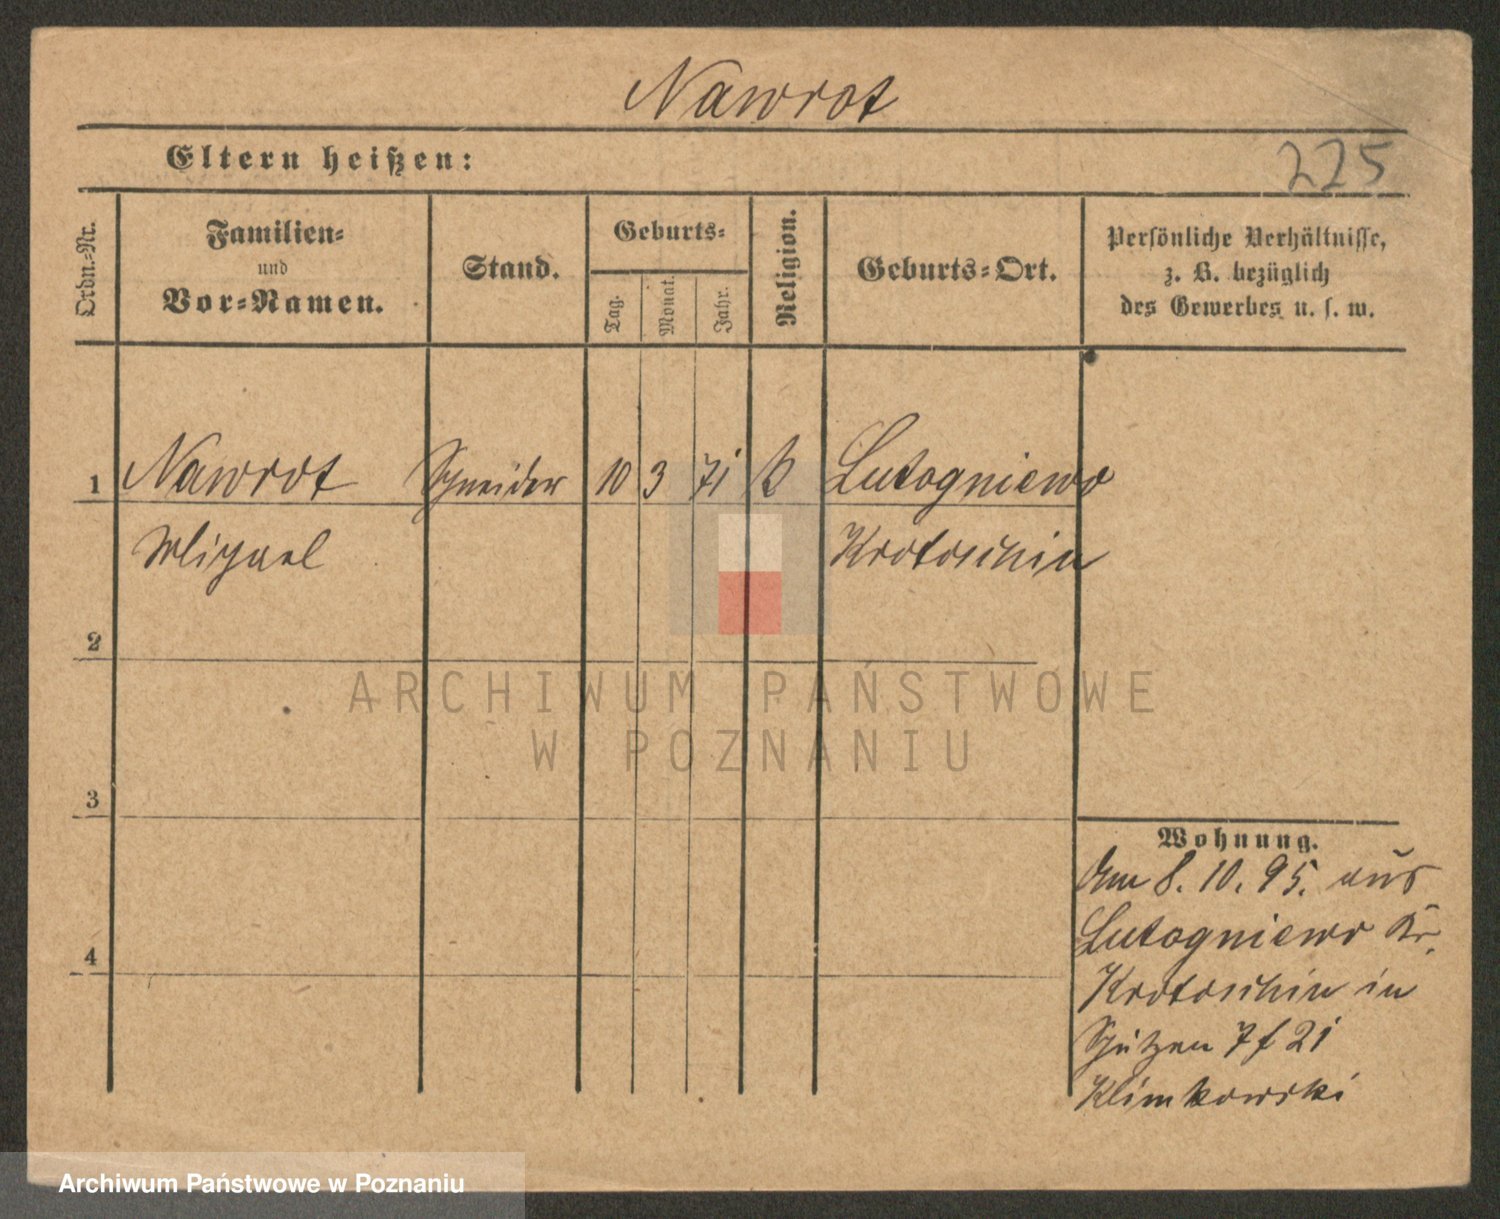 Nawrot
Eltern heißen:
225
Ordn.-Nr.
Familien-
und
Vor-Namen.
Stand.
Geburts-
Tag.
Monat.
Jahr.
Religion.
Geburts-Ort.
Persönliche Verhältnisse,
z. B. bezüglich
des Gewerbes u. s. w.
1 Nawrot Schneider 10 3 71 k Lutogniewo
Michael Krotoschin
2
3
4
Wohnung.
Am 8. 10. 95. aus
Lutogniewo Kr.
Krotoschin in
Schützen 7 f 21
Klimkowski
ARCHIWUM PAŃSTWOWE
W POZNANIU
Archiwum Państwowe w Poznaniu